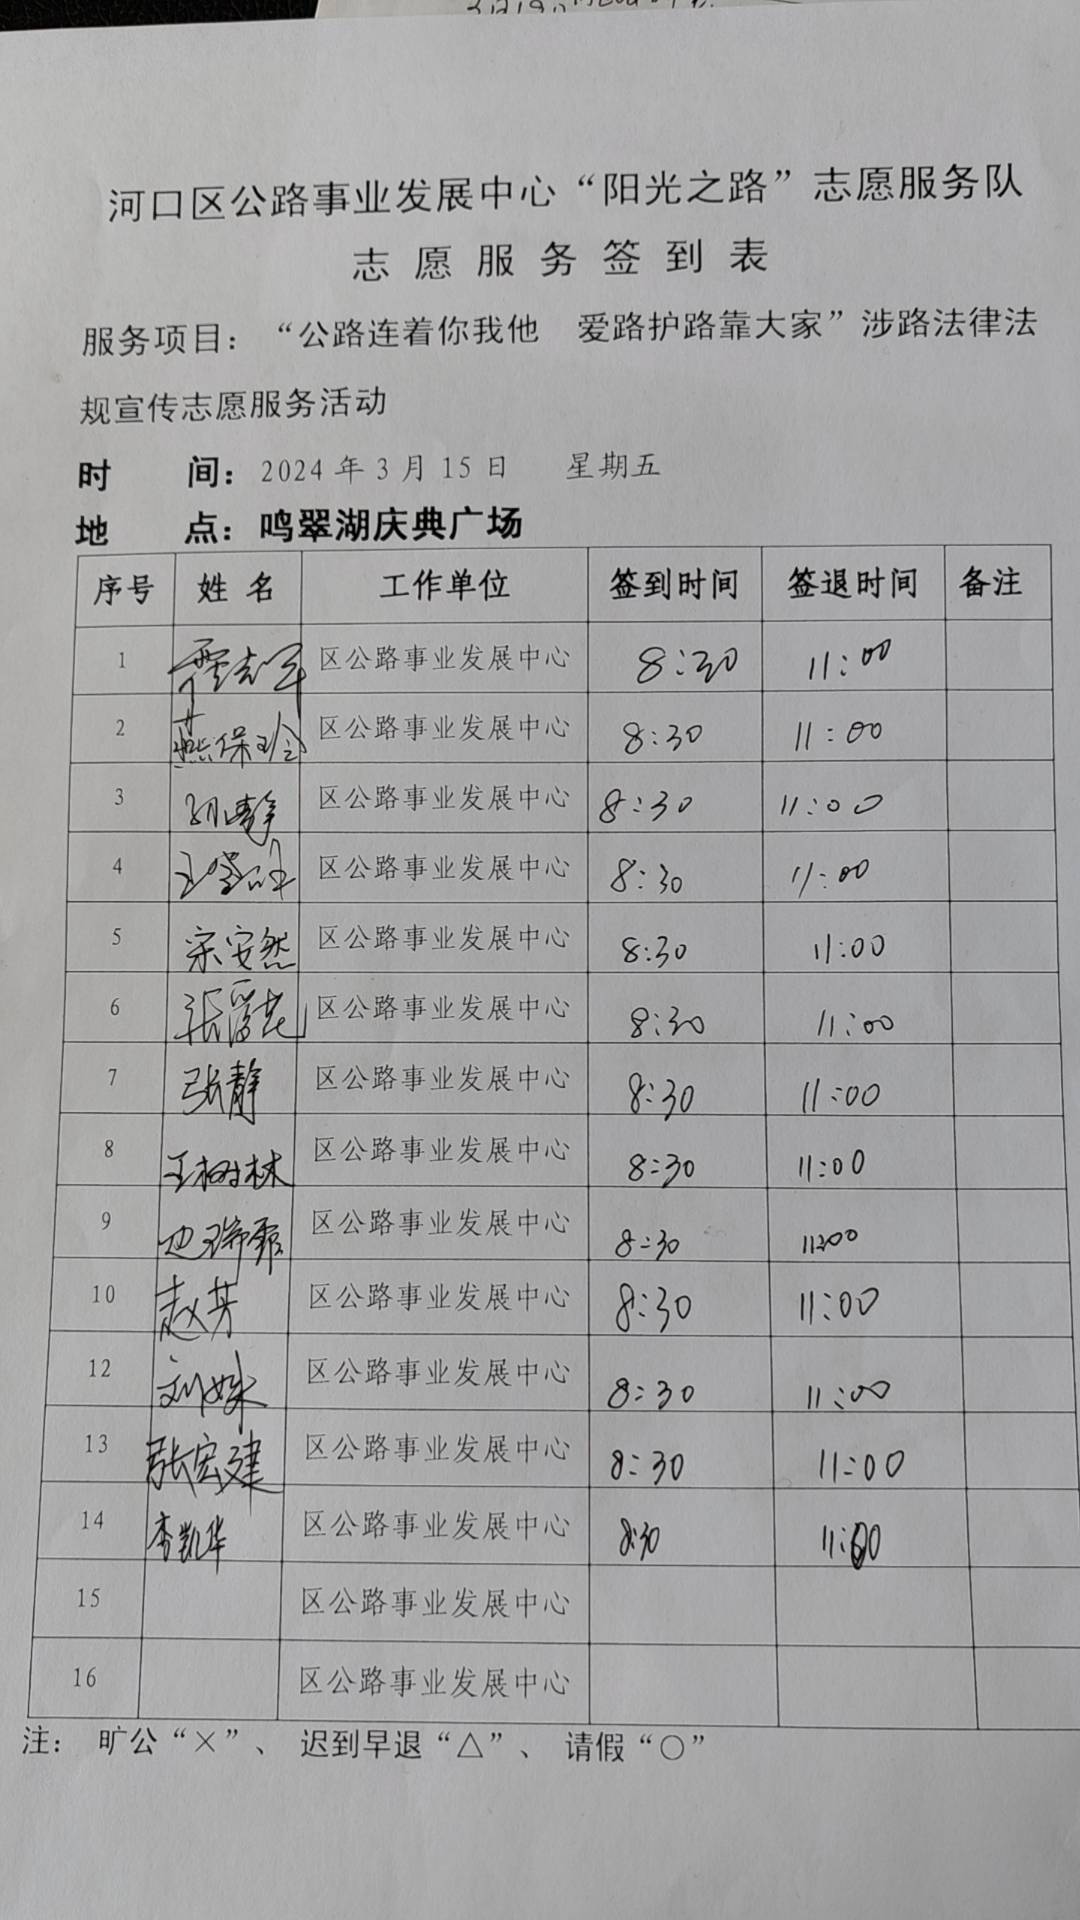 河口区公路事业发展中心“阳光之路”志愿服务队
志愿服务签到表
服务项目：“公路连着你我他 爱路护路靠大家”涉路法律法
规宣传志愿服务活动
时 间：2024年3月15日 星期五
地 点：鸣翠湖庆典广场
序号 姓名 工作单位 签到时间 签退时间 备注
1 区公路事业发展中心 8:30 11:00
2 燕保玲 区公路事业发展中心 8:30 11:00
3 区公路事业发展中心 8:30 11:00
4 区公路事业发展中心 8:30 11:00
5 宋安然 区公路事业发展中心 8:30 11:00
6 区公路事业发展中心 8:30 11:00
7 张静 区公路事业发展中心 8:30 11:00
8 王树林 区公路事业发展中心 8:30 11:00
9 区公路事业发展中心 8:30 11:00
10 赵芳 区公路事业发展中心 8:30 11:00
12 刘姝 区公路事业发展中心 8:30 11:00
13 张宏建 区公路事业发展中心 8:30 11:00
14 李凯华 区公路事业发展中心 8:30 11:00
15 区公路事业发展中心
16 区公路事业发展中心
注： 旷公“×”、 迟到早退“△”、 请假“○”